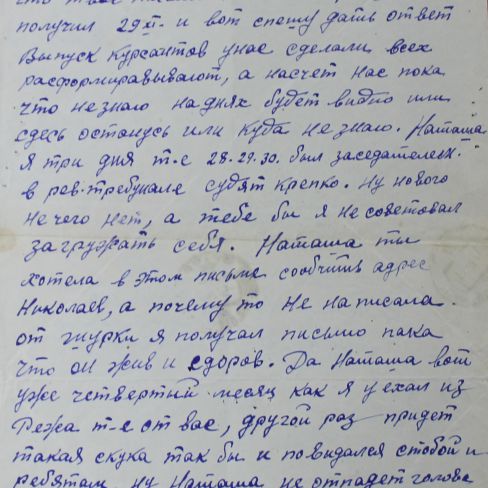 что твое
получил 29 XI. и вот спешу дать ответ
Выпуск курсантов у нас сделали всех
расформировывают, а насчет нас пока
что незнаю на днях будет видно или
сдесь останусь или куда не знаю. Наташа
я три дня т-е 28.29.30. был заседателем.
в рев-трибунале судят крепко. Ну нового
не чего нет, а тебе бы я не советовал
загружать себя. Наташа ты
хотела в этом письме сообчить адрес
Николаев, а почему то не написала.
от Шурки я получал письмо пака
что он жив и сдоров. Да Наташа вот
уже четвертый месяц как я уехал из
Режа т-е от вас, другой раз придет
такая скука так бы и повидался стобой и
ребятам ну Наташа не отпадет голова